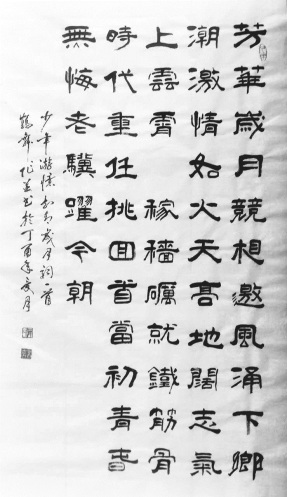 芳華歲月競相邀風涌下鄉
潮激情如火天高地闊志氣
上雲霄 稼穡礪就鐵筋骨
時代重任挑回首當初青春
無悔老驥躍今朝
少年游憶知青歲月詞一首
作並書於丁酉年亥月